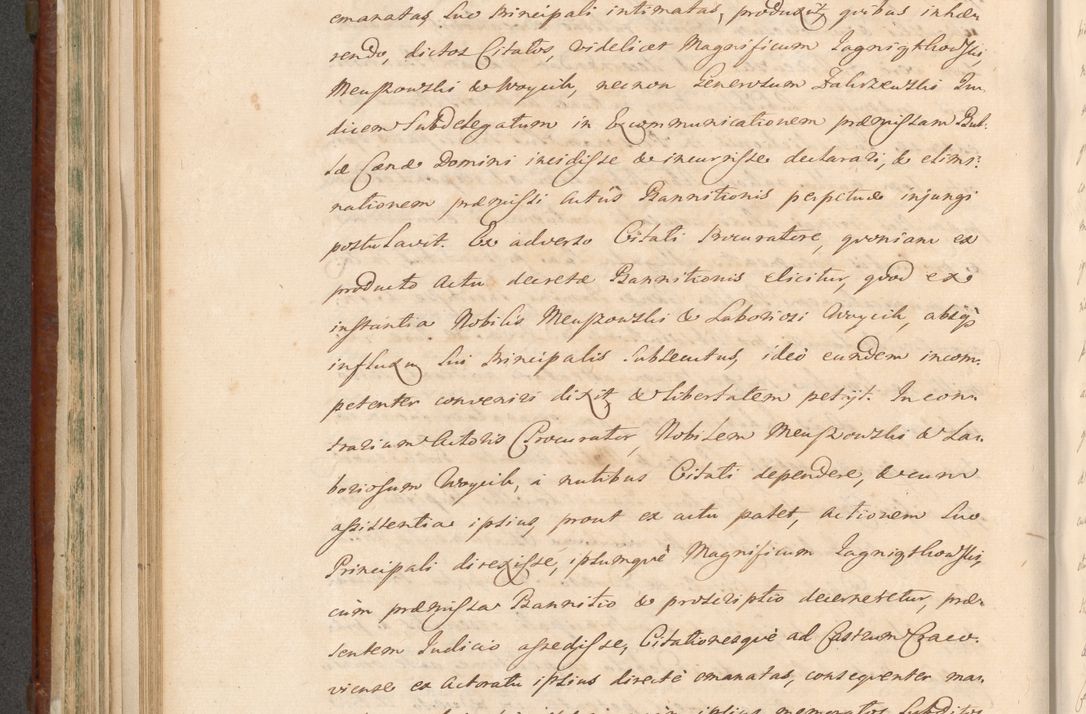 emanatas, suo Principali intimatas, produxit, quibus inhæ-
rendo, dictos Citatos, videlicet Magnificum Jagnigthowski,
Meuszowski & Woycik, necnon Generosum Zakrzewski Ju-
dicem Subdelegatum in Excommunicationem præmissam Bul-
læ Cænæ Domini incidisse & incurrisse declarari, & elimi-
nationem præmissi Actûs Bannitionis perpetuæ injungi
postulavit. Ex adverso Citati Procuratore, quoniam ex
producto Actu decretæ Bannitionis elicitur, quod ex
instantia Nobilis Meuszowski & Laboriosi Woycik, absq
influxu sui Principalis subsecutus, ideò eundem incom-
petenter conveniri dixit, & libertatem petijt. In con-
trarium Actoris Procurator, Nobilem Meuszowski & La-
boriosum Woycik, à nutibus Citati dependere, & cum
assistentia ipsius, prout ex actu patet, Actionem suo
Principali direxisse, ipsumquè Magnificum Jagnigthowski,
cùm præmissa Bannitio & proscriptio decerneretur, præ-
sentem Judicio assedisse, Citationesquè ad Castrum Craco-
viense ex Actoratu ipsius directè emanatas, consequenter man-
ipsius memoratos Subditos